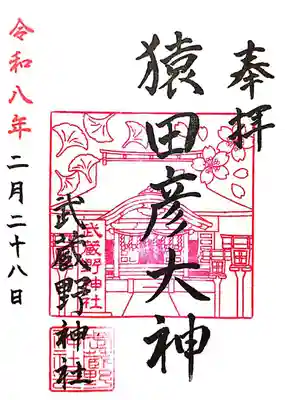 奉拝
猿田彦大神
武蔵野神社
武蔵野神社
令和八年
二月二十八日